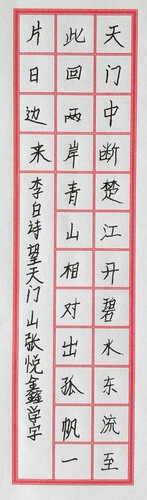 天门中断楚江开碧水东流至
此回两岸青山相对出孤帆一
片日边来李白诗望天门山张悦鑫学字